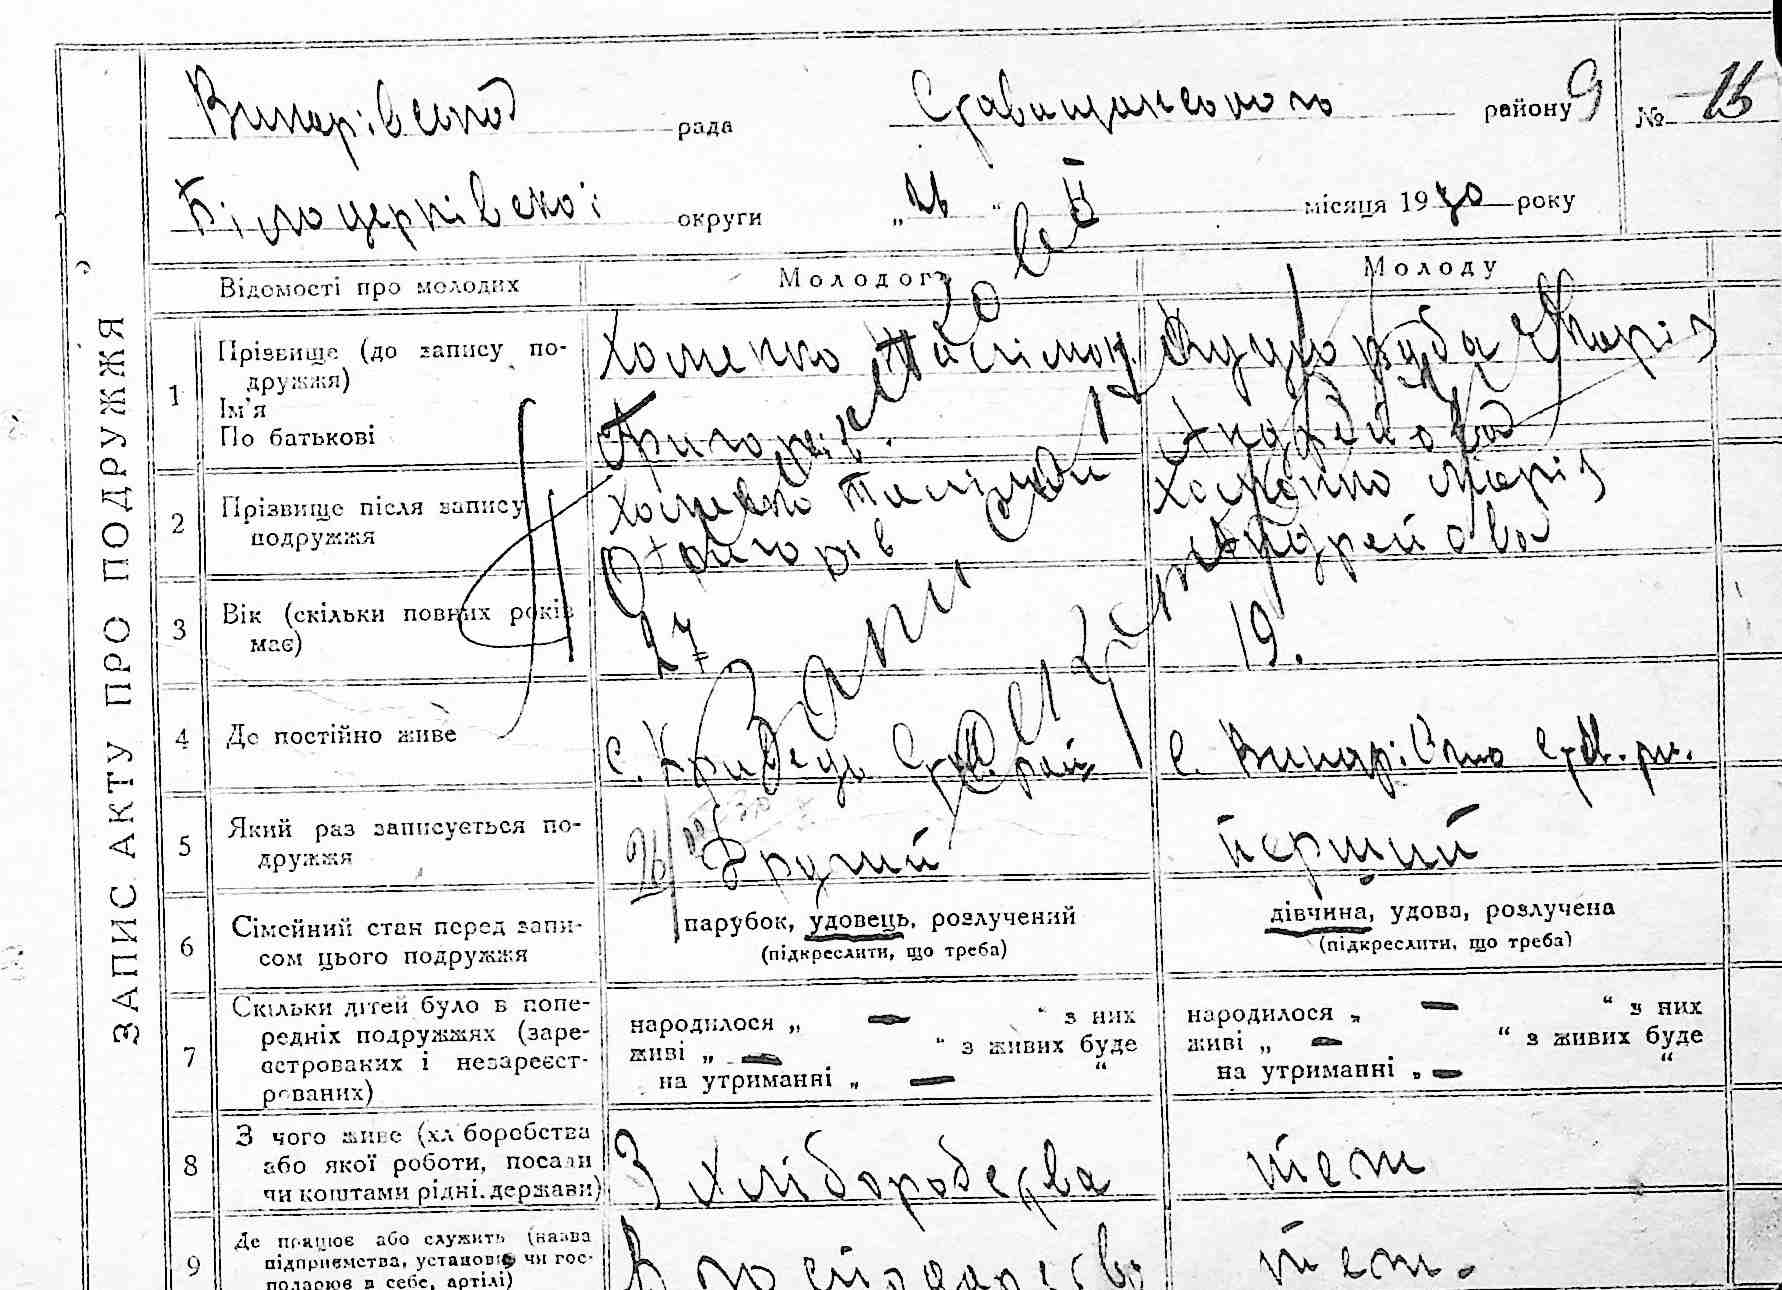 ЗАПИС АКТУ ПРО ПОДРУЖЖЯ
рада Ставищанського району № 15
Білоцерківської округи місяця 1930 року
Відомості про молодих Молодого Молоду
1 Прізвище (до запису по-
дружжя)
Ім'я
По батькові
Хоменко
Марія
2 Прізвище після запису
подружжя
Хоменко
Хоменко Марія
3 Вік (скільки повних років
має)
27
19.
4 Де постійно живе
с. Кривець Став. рай
с. Винарівка Став. рн.
5 Який раз записується по-
дружжя
Другий
перший
6 Сімейний стан перед запи-
сом цього подружжя
парубок, удовець, розлучений
(підкреслити, що треба)
дівчина, удова, розлучена
(підкреслити, що треба)
7 Скільки дітей було в попе-
редніх подружжях (заре-
єстрованих і незареєст-
рованих)
народилося „ — “ з них
живі „ — “ з живих буде
на утриманні „ — “
народилося „ — “ з них
живі „ — “ з живих буде
на утриманні „ — “
8 З чого живе (хліборобства
або якої роботи, посади
чи коштами рідні, держави)
З хліборобства
теж
9 Де працює або служить (назва
підприємства, установи чи гос-
подарює в себе, артілі)
В господарстві
теж.